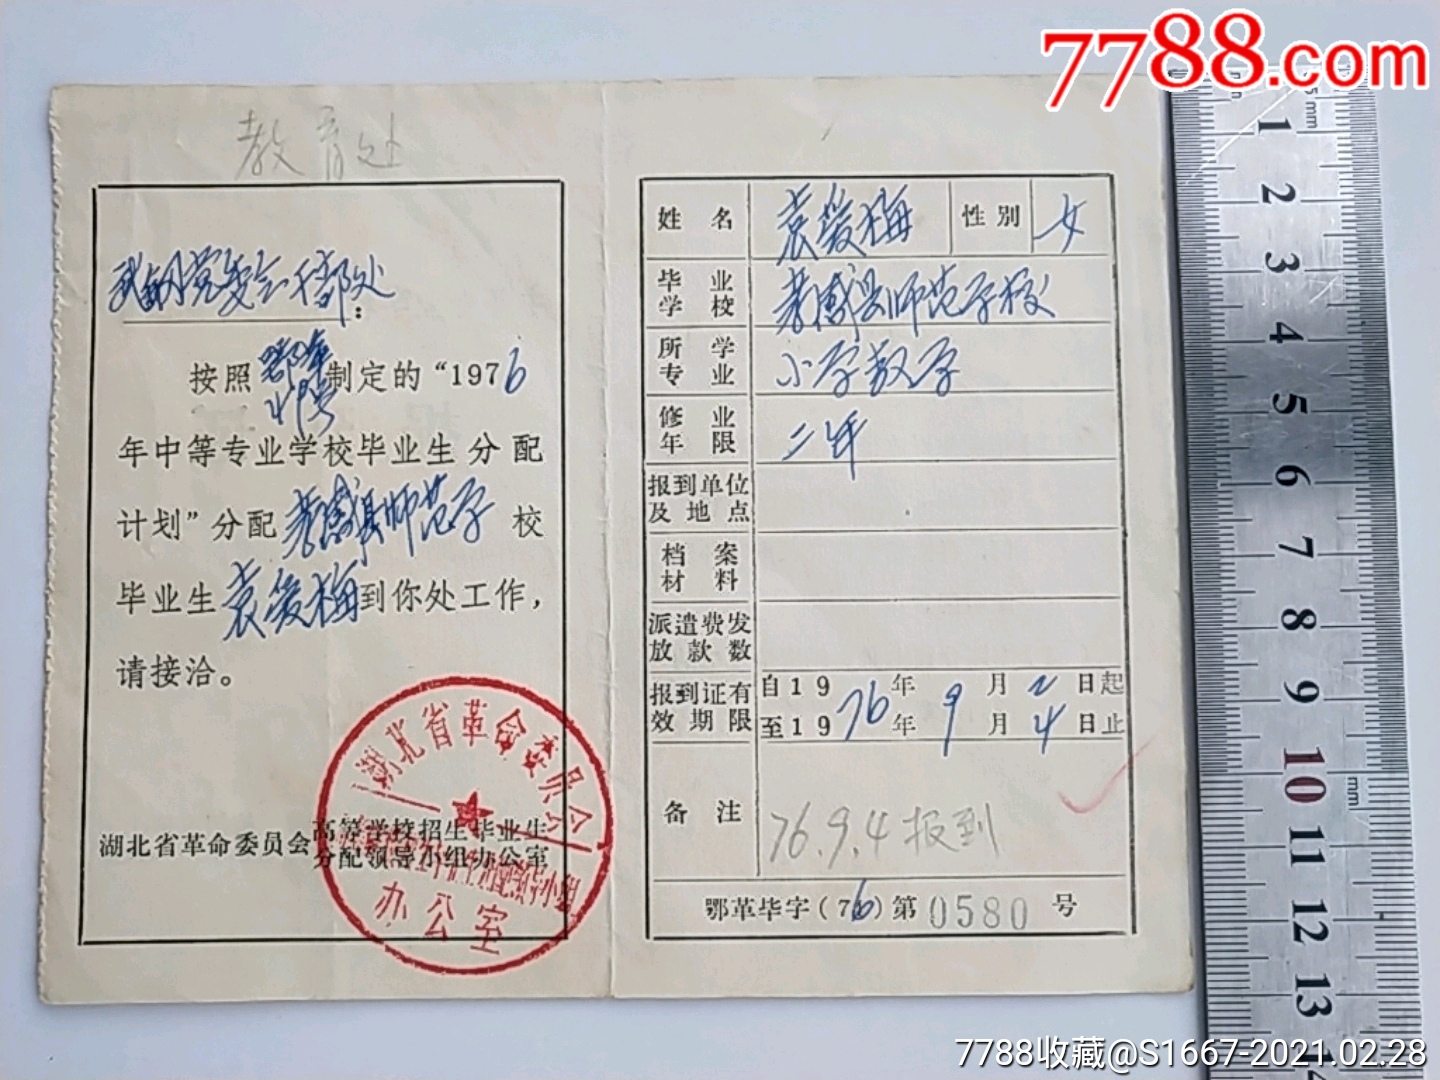 7788.com
教育处
武钢党委会干部处:
按照鄂革制定的“1976
年中等专业学校毕业生分配
计划”分配孝感县师范学校
毕业生袁爱梅到你处工作,
请接洽。
湖北省革命委员会高等学校招生毕业生
分配领导小组办公室
湖北省革命委员会
办公室
姓名 袁爱梅 性别 女
毕业学校 孝感县师范学校
所学专业 小学数学
修业年限 二年
报到单位及地点
档案材料
派遣费发放款数
报到证有效期限 自1976年9月2日起
至1976年9月4日止
备注 76.9.4报到
鄂革毕字(76)第0580号
mm
1
2
3
4
5
6
7
8
9
10
mm
11
12
13
7788收藏@S1667-2021.02.28